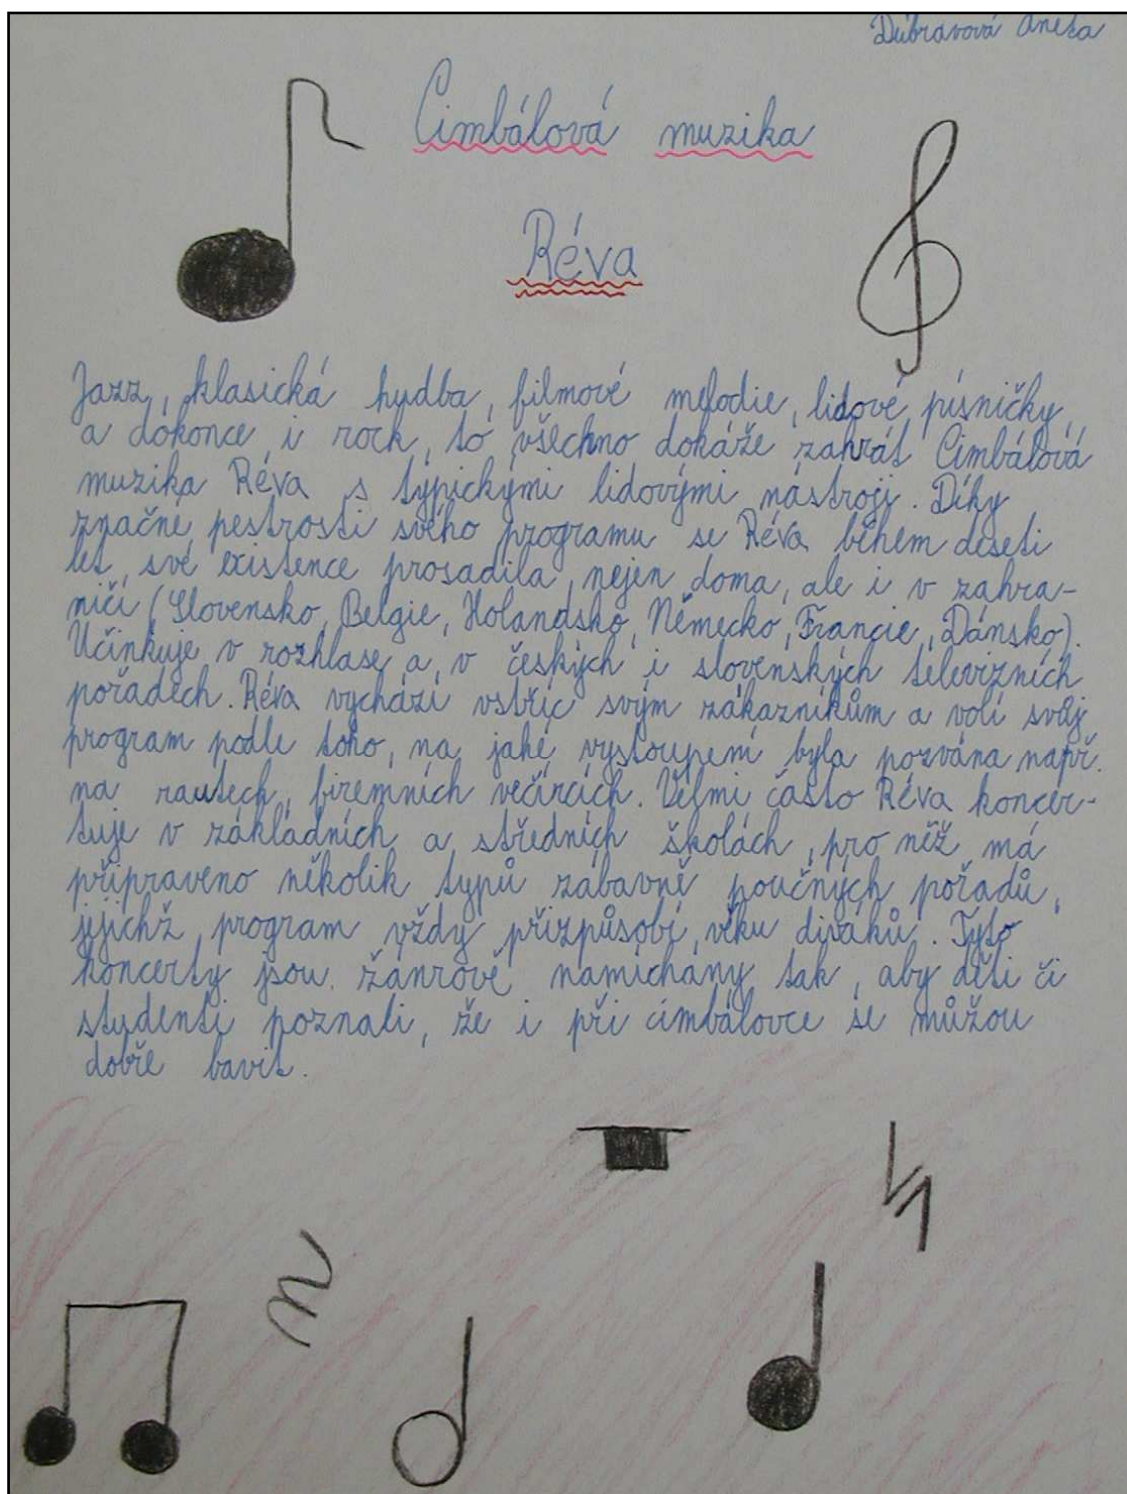 Dubravová Aneta
Cimbálová muzika
Réva
Jazz, klasická hudba, filmové melodie, lidové písničky,
a dokonce i rock, to všechno dokáže zahrát Cimbálová
muzika Réva s typickými lidovými nástroji. Díky
značné pestrosti svého programu se Réva během deseti
let své existence prosadila nejen doma, ale i v zahra-
ničí (Slovensko, Belgie, Holandsko, Německo, Francie, Dánsko).
Účinkuje v rozhlase a v českých i slovenských televizních
pořadech. Réva vychází vstříc svým zákazníkům a volí svůj
program podle toho, na jaké vystoupení byla pozvána např.
na rautech, firemních večírcích. Velmi často Réva koncer-
tuje v základních a středních školách, pro něž má
připraveno několik typů zábavně poučných pořadů,
jejichž program vždy přizpůsobí věku diváků. Tyto
koncerty jsou žánrově namíchány tak, aby děti či
studenti poznali, že i při cimbálovce se můžou
dobře bavit.